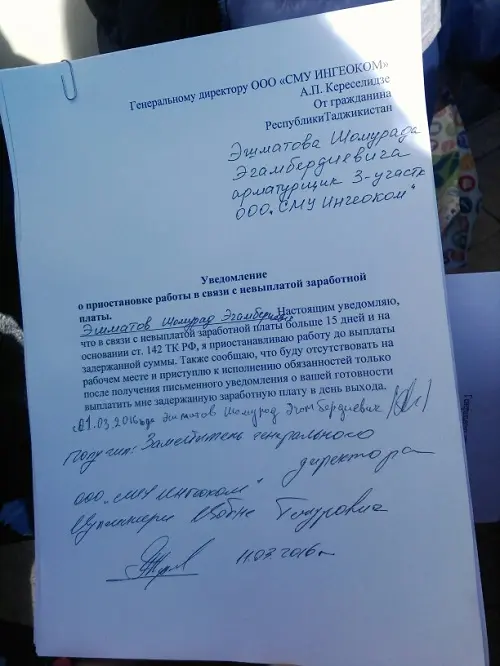 Генеральному директору ООО «СМУ ИНГЕОКОМ»
А.П. Кереселидзе
От гражданина
РеспубликиТаджикистан
Эшматова Шомурада
Эгамбердиевича
арматурщик 3-участк
ООО „СМУ Ингеоком"
Уведомление
о приостановке работы в связи с невыплатой заработной
платы.
Эшматов Шомурад Эгамбердиевич Настоящим уведомляю,
что в связи с невыплатой заработной платы больше 15 дней и на
основании ст. 142 ТК РФ, я приостанавливаю работу до выплаты
задержанной суммы. Также сообщаю, что буду отсутствовать на
рабочем месте и приступлю к исполнению обязанностей только
после получения письменного уведомления о вашей готовности
выплатить мне задержанную заработную плату в день выхода.
с 01.03.2016 Эшматов Шомурад Эгамбердиевич
Получил: Заместитель генерального
директора
ООО „СМУ ИНГЕОКОМ"
11.03.2016 г